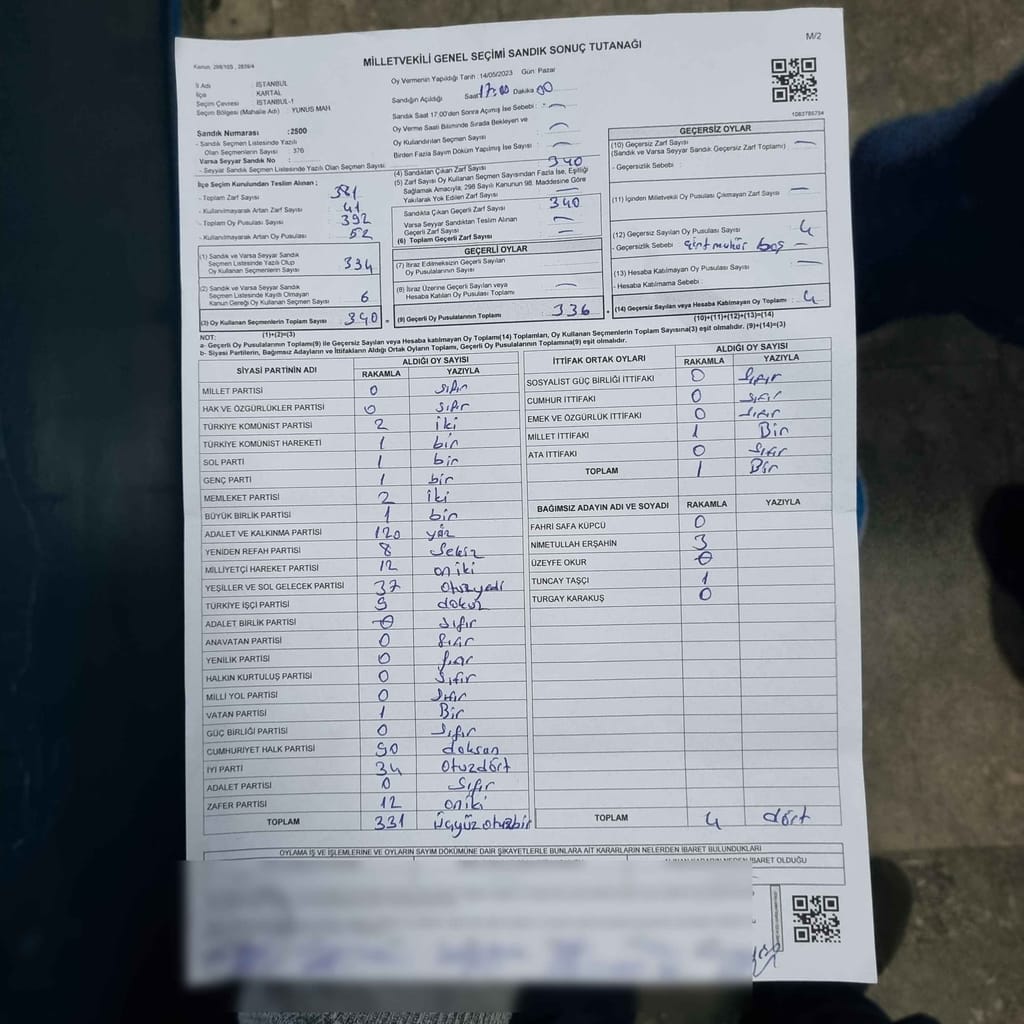 MİLLETVEKİLİ GENEL SEÇİMİ SANDIK SONUÇ TUTANAĞI
M/2
Kanun: 298/105 , 2839/4
İl Adı : İSTANBUL
İlçe : KARTAL
Seçim Çevresi : İSTANBUL-1
Seçim Bölgesi (Mahalle Adı) : YUNUS MAH.
Sandık Numarası : 2500
- Sandık Seçmen Listesinde Yazılı
Olan Seçmenlerin Sayısı : 376
Varsa Seyyar Sandık No :
- Seyyar Sandık Seçmen Listesinde Yazılı Olan Seçmen Sayısı :
İlçe Seçim Kurulundan Teslim Alınan ;
- Toplam Zarf Sayısı : 381
- Kullanılmayarak Artan Zarf Sayısı : 41
- Toplam Oy Pusulası Sayısı : 392
- Kullanılmayarak Artan Oy Pusulası : 52
(1) Sandık ve Varsa Seyyar Sandık
Seçmen Listesinde Yazılı Olup
Oy Kullanan Seçmenlerin Sayısı 334
(2) Sandık ve Varsa Seyyar Sandık
Seçmen Listesinde Kayıtlı Olmayan
Kanun Gereği Oy Kullanan Seçmen Sayısı 6
(3) Oy Kullanan Seçmenlerin Toplam Sayısı 340
(1)+(2)=(3)
Oy Vermenin Yapıldığı Tarih : 14/05/2023 Gün: Pazar
Sandığın Açıldığı Saat 17:00 Dakika 00
Sandık Saat 17:00'den Sonra Açılmış İse Sebebi : -
Oy Verme Saati Bitiminde Sırada Bekleyen ve
Oy Kullandırılan Seçmen Sayısı : -
Birden Fazla Sayım Döküm Yapılmış İse Sayısı : -
(4) Sandıktan Çıkan Zarf Sayısı : 340
(5) Zarf Sayısı Oy Kullanan Seçmen Sayısından Fazla İse, Eşitliği
Sağlamak Amacıyla, 298 Sayılı Kanunun 98. Maddesine Göre
Yakılarak Yok Edilen Zarf Sayısı : -
Sandıkta Çıkan Geçerli Zarf Sayısı : 340
Varsa Seyyar Sandıktan Teslim Alınan
Geçerli Zarf Sayısı : -
(6) Toplam Geçerli Zarf Sayısı : -
GEÇERLİ OYLAR
(7) İtiraz Edilmeksizin Geçerli Sayılan
Oy Pusulalarının Sayısı : -
(8) İtiraz Üzerine Geçerli Sayılan veya
Hesaba Katılan Oy Pusulası Toplamı : -
(9) Geçerli Oy Pusulalarının Toplamı : 336
1083785754
GEÇERSİZ OYLAR
(10) Geçersiz Zarf Sayısı : -
(Sandık ve Varsa Seyyar Sandık Geçersiz Zarf Toplamı)
- Geçersizlik Sebebi :
(11) İçinden Milletvekili Oy Pusulası Çıkmayan Zarf Sayısı : -
(12) Geçersiz Sayılan Oy Pusulası Sayısı : 4
- Geçersizlik Sebebi : boş -
(13) Hesaba Katılmayan Oy Pusulası Sayısı : -
- Hesaba Katılmama Sebebi :
(14) Geçersiz Sayılan veya Hesaba Katılmayan Oy Toplamı : 4
(10)+(11)+(12)+(13)=(14)
NOT:
a- Geçerli Oy Pusulalarının Toplamı(9) ile Geçersiz Sayılan veya Hesaba katılmayan Oy Toplamı(14) Toplamları, Oy Kullanan Seçmenlerin Toplam Sayısına(3) eşit olmalıdır. (9)+(14)=(3)
b- Siyasi Partilerin, Bağımsız Adayların ve İttifakların Aldığı Ortak Oyların Toplamı, Geçerli Oy Pusulalarının Toplamına(9) eşit olmalıdır.
SİYASİ PARTİNİN ADI ALDIĞI OY SAYISI
RAKAMLA YAZIYLA
MİLLET PARTİSİ 0 sıfır
HAK VE ÖZGÜRLÜKLER PARTİSİ 0 sıfır
TÜRKİYE KOMÜNİST PARTİSİ 2 iki
TÜRKİYE KOMÜNİST HAREKETİ 1 bir
SOL PARTİ 1 bir
GENÇ PARTİ 1 bir
MEMLEKET PARTİSİ 2 iki
BÜYÜK BİRLİK PARTİSİ 1 bir
ADALET VE KALKINMA PARTİSİ 120 yüz
YENİDEN REFAH PARTİSİ 8 sekiz
MİLLİYETÇİ HAREKET PARTİSİ 12 oniki
YEŞİLLER VE SOL GELECEK PARTİSİ 37 otuzyedi
TÜRKİYE İŞÇİ PARTİSİ 9 dokuz
ADALET BİRLİK PARTİSİ 0 sıfır
ANAVATAN PARTİSİ 0 sıfır
YENİLİK PARTİSİ 0 sıfır
HALKIN KURTULUŞ PARTİSİ 0 sıfır
MİLLİ YOL PARTİSİ 0 sıfır
VATAN PARTİSİ 1 Bir
GÜÇ BİRLİĞİ PARTİSİ 0 sıfır
CUMHURİYET HALK PARTİSİ 90 doksan
İYİ PARTİ 34 otuzdört
ADALET PARTİSİ 0 sıfır
ZAFER PARTİSİ 12 oniki
TOPLAM 331 üçyüz otuzbir
İTTİFAK ORTAK OYLARI ALDIĞI OY SAYISI
RAKAMLA YAZIYLA
SOSYALİST GÜÇ BİRLİĞİ İTTİFAKI 0 sıfır
CUMHUR İTTİFAKI 0 sıfır
EMEK VE ÖZGÜRLÜK İTTİFAKI 0 sıfır
MİLLET İTTİFAKI 1 Bir
ATA İTTİFAKI 0 sıfır
TOPLAM 1 Bir
BAĞIMSIZ ADAYIN ADI VE SOYADI RAKAMLA YAZIYLA
FAHRİ SAFA KÜPCÜ 0
NİMETULLAH ERŞAHİN 3
ÜZEYFE OKUR 0
TUNCAY TAŞÇI 1
TURGAY KARAKUŞ 0
TOPLAM 4 dört
OYLAMA İŞ VE İŞLEMLERİNE VE OYLARIN SAYIM DÖKÜMÜNE DAİR ŞİKAYETLERLE BUNLARA AİT KARARLARIN NELERDEN İBARET BULUNDUKLARI
ALINAN KARARIN NEDEN İBARET OLDUĞU